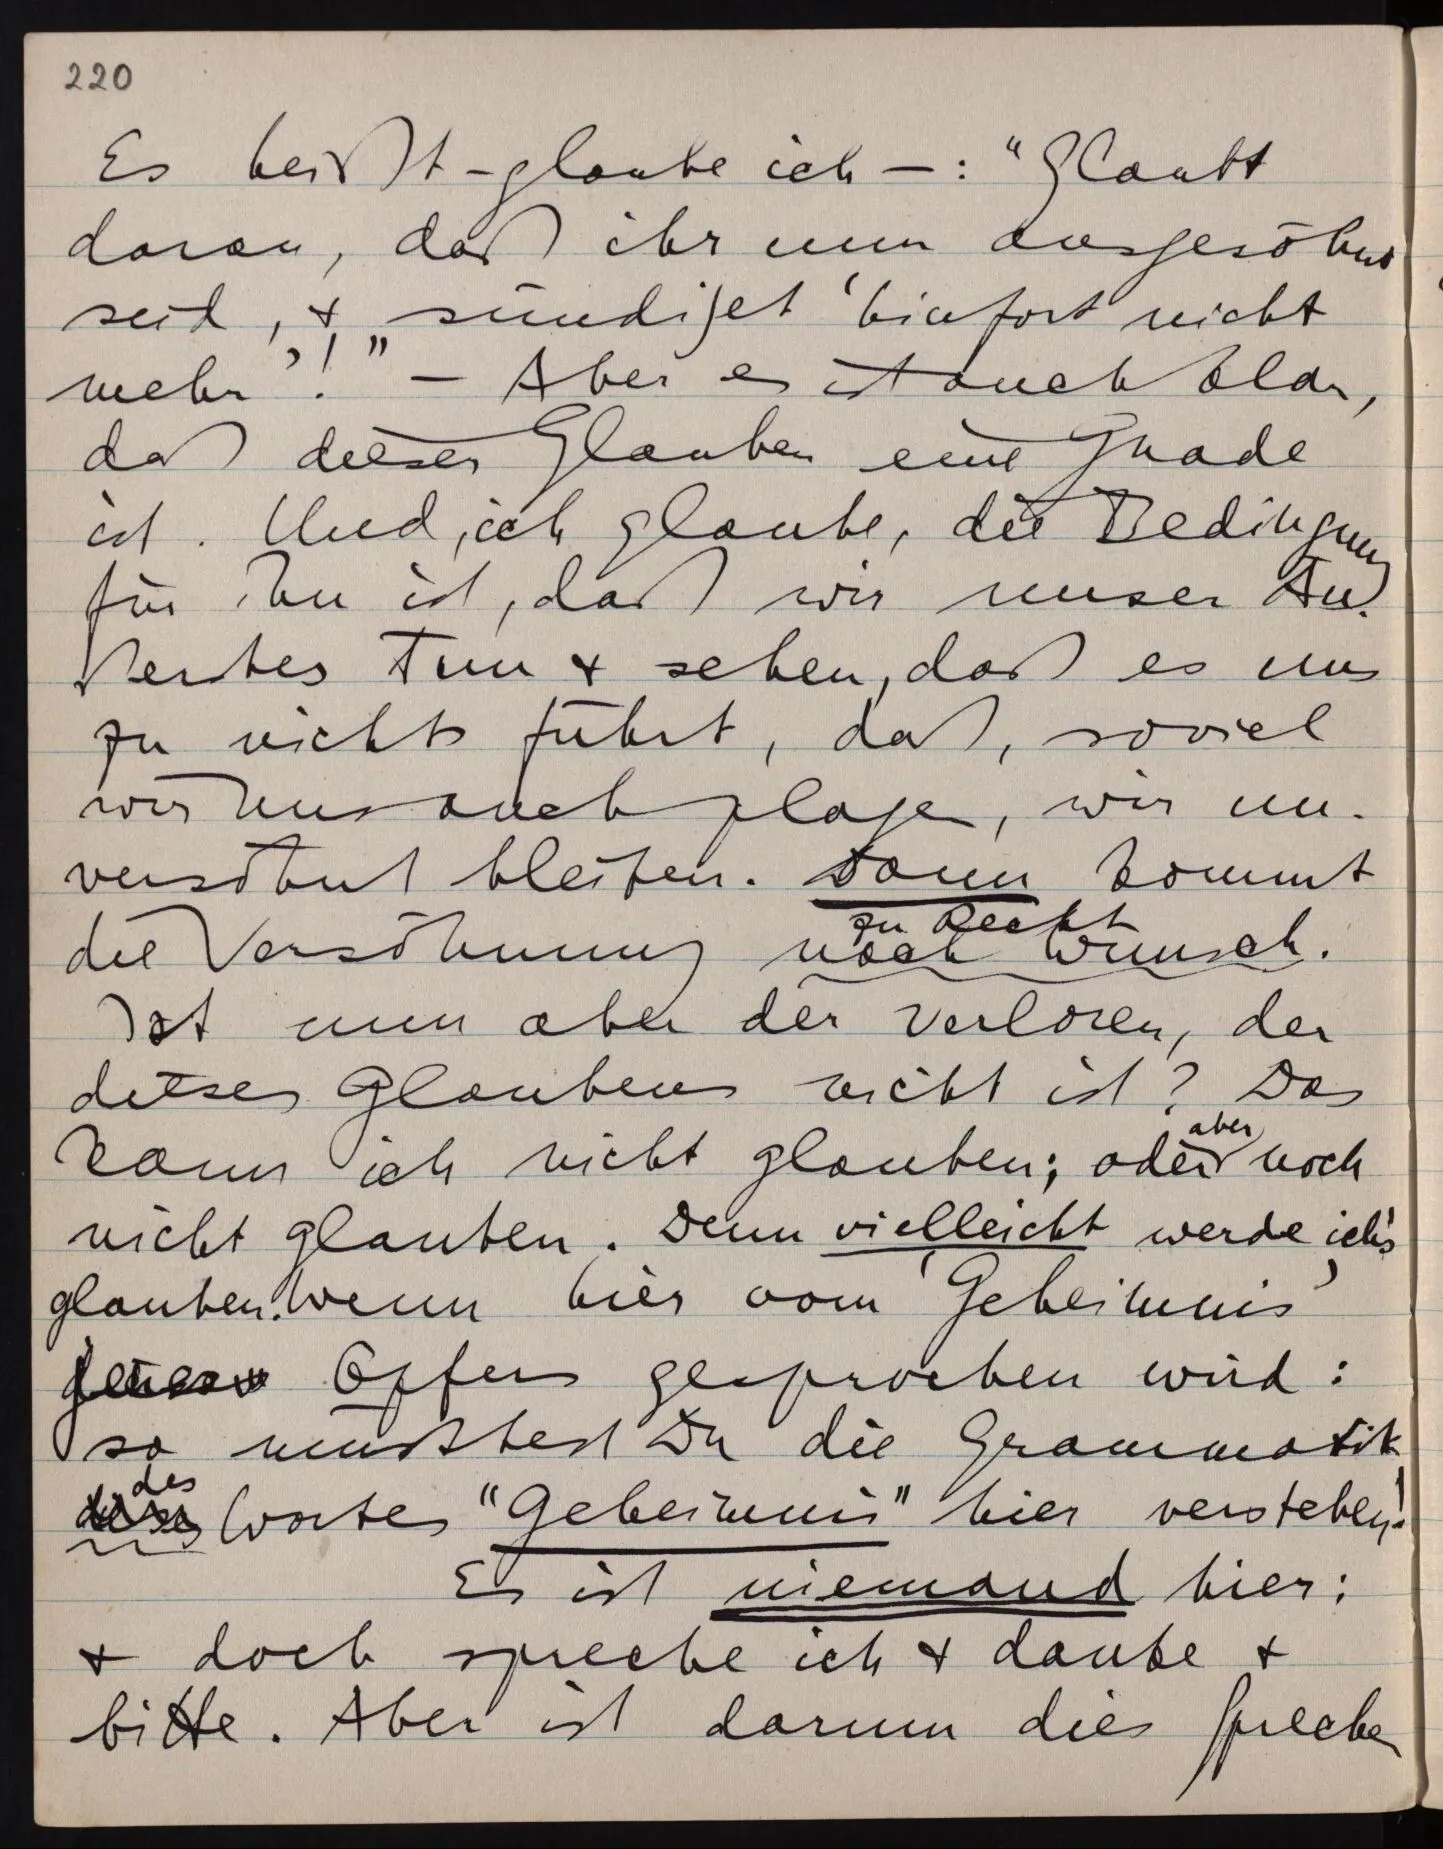 220
Es heißt – glaube ich –: "Glaubt
daran, daß ihr nun ausgesöhnt
seid, & sündiget 'hinfort nicht
mehr'!" – Aber es ist auch klar,
daß dieser Glauben eine Gnade
ist. Und, ich glaube, die Bedingung
für ihn ist, daß wir unser Äu-
ßerstes tun & sehen, daß es uns
zu nichts führt, daß, soviel
wir uns auch plagen, wir un-
versöhnt bleiben. Dann kommt
zu Recht
die Versöhnung nach Wunsch.
Ist nun aber der verloren, der
dieses Glaubens nicht ist? Das
aber
kann ich nicht glauben; oder noch
nicht glauben. Denn vielleicht werde ich's
glauben. Wenn hier vom 'Geheimnis'
jenes Opfers gesprochen wird:
so müßtest Du die Grammatik
des
dieses Wortes "Geheimnis" hier verstehen!
Es ist niemand hier:
& doch spreche ich & danke &
bitte. Aber ist darum dies Sprechen